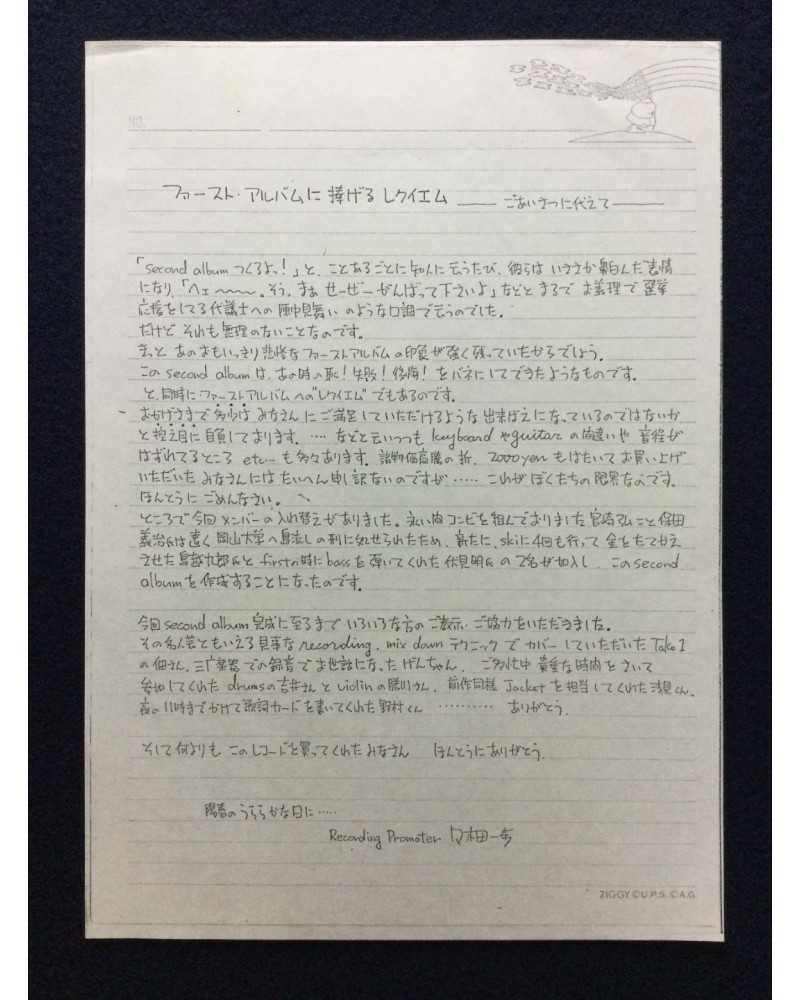 No.
ファースト・アルバムに捧げるレクイエム —— ごあいさつに代えて ——
「second album つくるよっ!」と、ことあるごとに知人に云うたび、彼らは いささか鼻白んだ表情
になり、「ヘェ〜〜〜。そう。まぁ せーぜーがんばって下さいよ」などと まるで お義理で 選挙
応援をしてる代議士への 陣中見舞い のような口調で云うのでした。
だけど それも無理のないことなのです。
きっと あのおもいっきり悲惨な ファーストアルバムの印象が強く残っていたからでしょう。
この second album は、あの時の恥! 失敗! 後悔! をバネにしてできたようなものです。
と、同時にファーストアルバムへの"レクイエム"でもあるのです。
おかげさまで 多少は みなさんに ご満足していただけるような 出来ばえになっているのではないか
と控え目に自負しております。…. などと云いつつも keyboard やguitar の間違いや 音程が
はずれてるところ etc… も多々あります。諸物価高騰の折、2000yen もはたいて お買い上げ
いただいた みなさんには たいへん申し訳ないのですが …… これが ぼくたちの限界なのです。
ほんとうに ごめんなさい。
ところで今回 メンバーの入れ替えがありました。永い間コンビを組んでおりました 宮崎弘こと 保田
義治氏は遠く 岡山大学へ島流しの刑に処せられたため、新たに、skiに4回も行って 金をたてかえ
させた 九郎氏と firstの時にbassを弾いてくれた 伏見明氏 の2名が加入し、このsecond
album を作成することになったのです。
今回 second album 完成に至るまで いろいろな方の ご教示・ご協力をいただきました。
その名人芸ともいえる見事な recording、mix down テクニックで カバーしていただいた Take 1
の 佃さん、三広楽器での録音でお世話になった げんちゃん、ご多忙中 貴重な時間をさいて
参加してくれた drumsの吉井さんと violinの さん、前作同様 Jacketを担当してくれた 浅見くん、
夜の11時までかけて歌詞カードを書いてくれた 野村くん ………… ありがとう。
そして何よりも このレコードを買ってくれたみなさん ほんとうにありがとう。
陽春のうららかな日に…..
Recording Promoter
ZIGGY ©U.P.S. ©A.G.